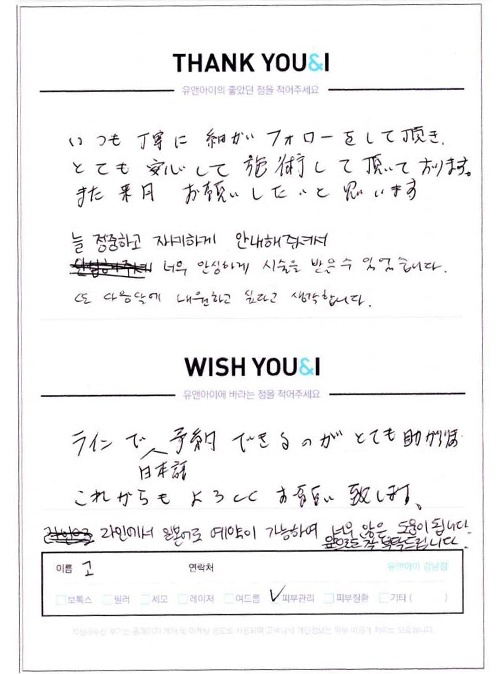 THANK YOU&I
유앤아이의 좋았던 점을 적어주세요
いつも 丁寧に 細かい フォローをして頂き、
とても 安心して 施術して 頂いて おります。
また 来月 お願いしたいと 思います
늘 정중하고 자세하게 안내해주셔서
너무 안심하게 시술을 받은수 있었습니다.
또 다음달에 내원하고 싶다고 생각합니다.
WISH YOU&I
유앤아이에 바라는 점을 적어주세요
ラインで 日本語 予約 できるのが とても 助かり
これからも よろしく お願い 致します。
라인에서 일본어로 예약이 가능하여 너무 많은 도움이 됩니다.
앞으로도 잘 부탁드립니다.
이름 고 연락처 유앤아이 강남점
보톡스 필러 제모 레이저 여드름 ✓피부관리 피부질환 기타 ( )